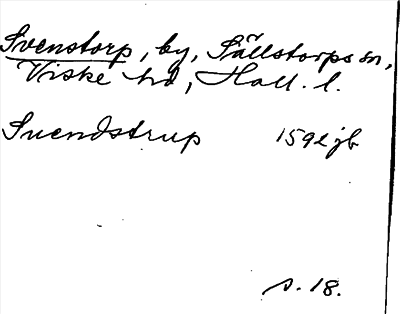 Svenstorp, by, Sällstorps sn,
Viske hd, Hall. l.
Suendstrup 1592 jb
s. 18.